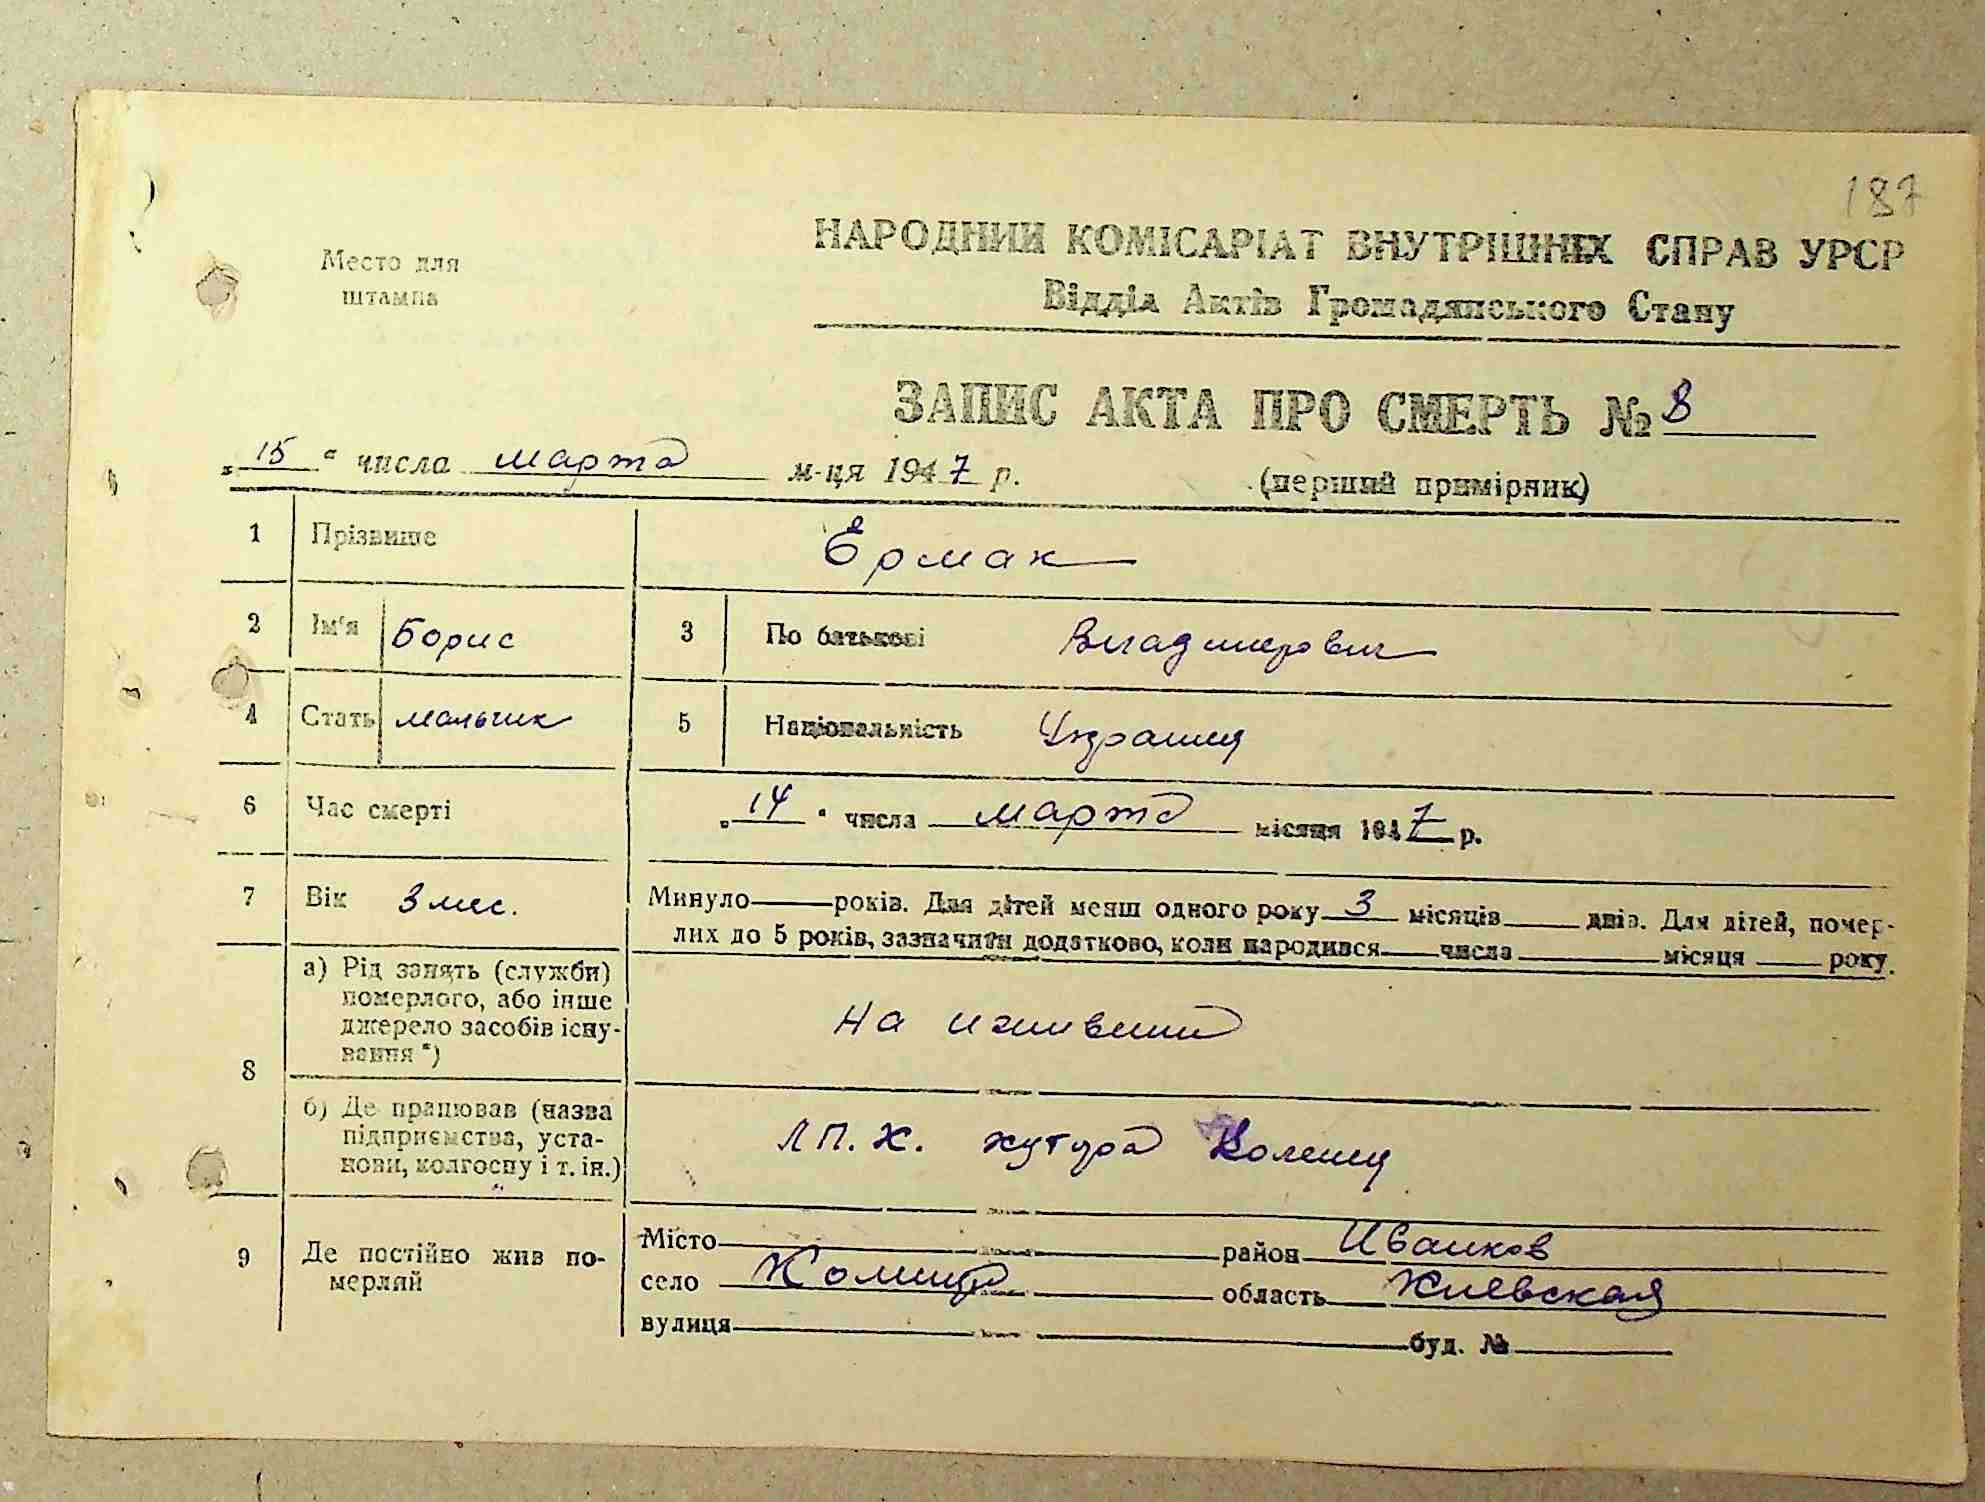 187
Место для
штампа
НАРОДНИЙ КОМІСАРІАТ ВНУТРІШНІХ СПРАВ УРСР
Відділ Актів Громадянського Стану
ЗАПИС АКТА ПРО СМЕРТЬ № 8
„ 15 “ числа марта м-ця 1947 р.
(перший примірник)
1 Прізвище Ермак
2 Ім'я Борис 3 По батькові Владимирович
4 Стать мальчик 5 Національність Украинец
6 Час смерті „ 14 “ числа марта місяця 1947 р.
7 Вік 3 мес. Минуло років. Для дітей менш одного року 3 місяців днів. Для дітей, помер-
лих до 5 років, зазначити додатково, коли народився числа місяця року.
8 а) Рід занять (служби)
померлого, або інше
джерело засобів існу-
вання *)
на иживении
б) Де працював (назва
підприємства, уста-
нови, колгоспу і т. ін.)
ЛП.Х. хутора
9 Де постійно жив по-
мерлий
Місто район Иванков
село область Киевская
вулиця буд. №